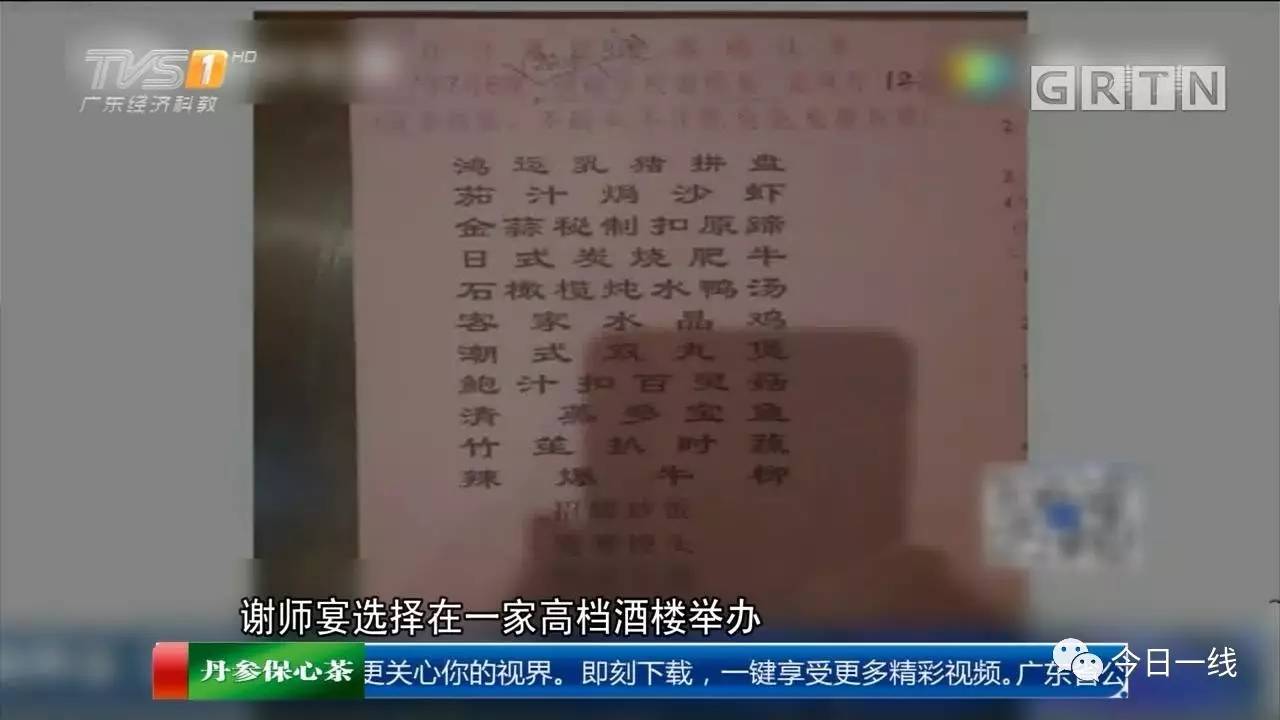 TVS1 HD
广东经济科教
GRTN
12
鸿运乳猪拼盘
茄汁焗沙虾
金蒜秘制扣原蹄
日式炭烧肥牛
石橄榄炖水鸭汤
客家水晶鸡
潮式双丸煲
鲍汁扣百灵菇
清蒸多宝鱼
竹笙扒时蔬
辣爆牛柳
谢师宴选择在一家高档酒楼举办
丹参保心茶
更关心你的视界。即刻下载，一键享受更多精彩视频。广东
今日一线